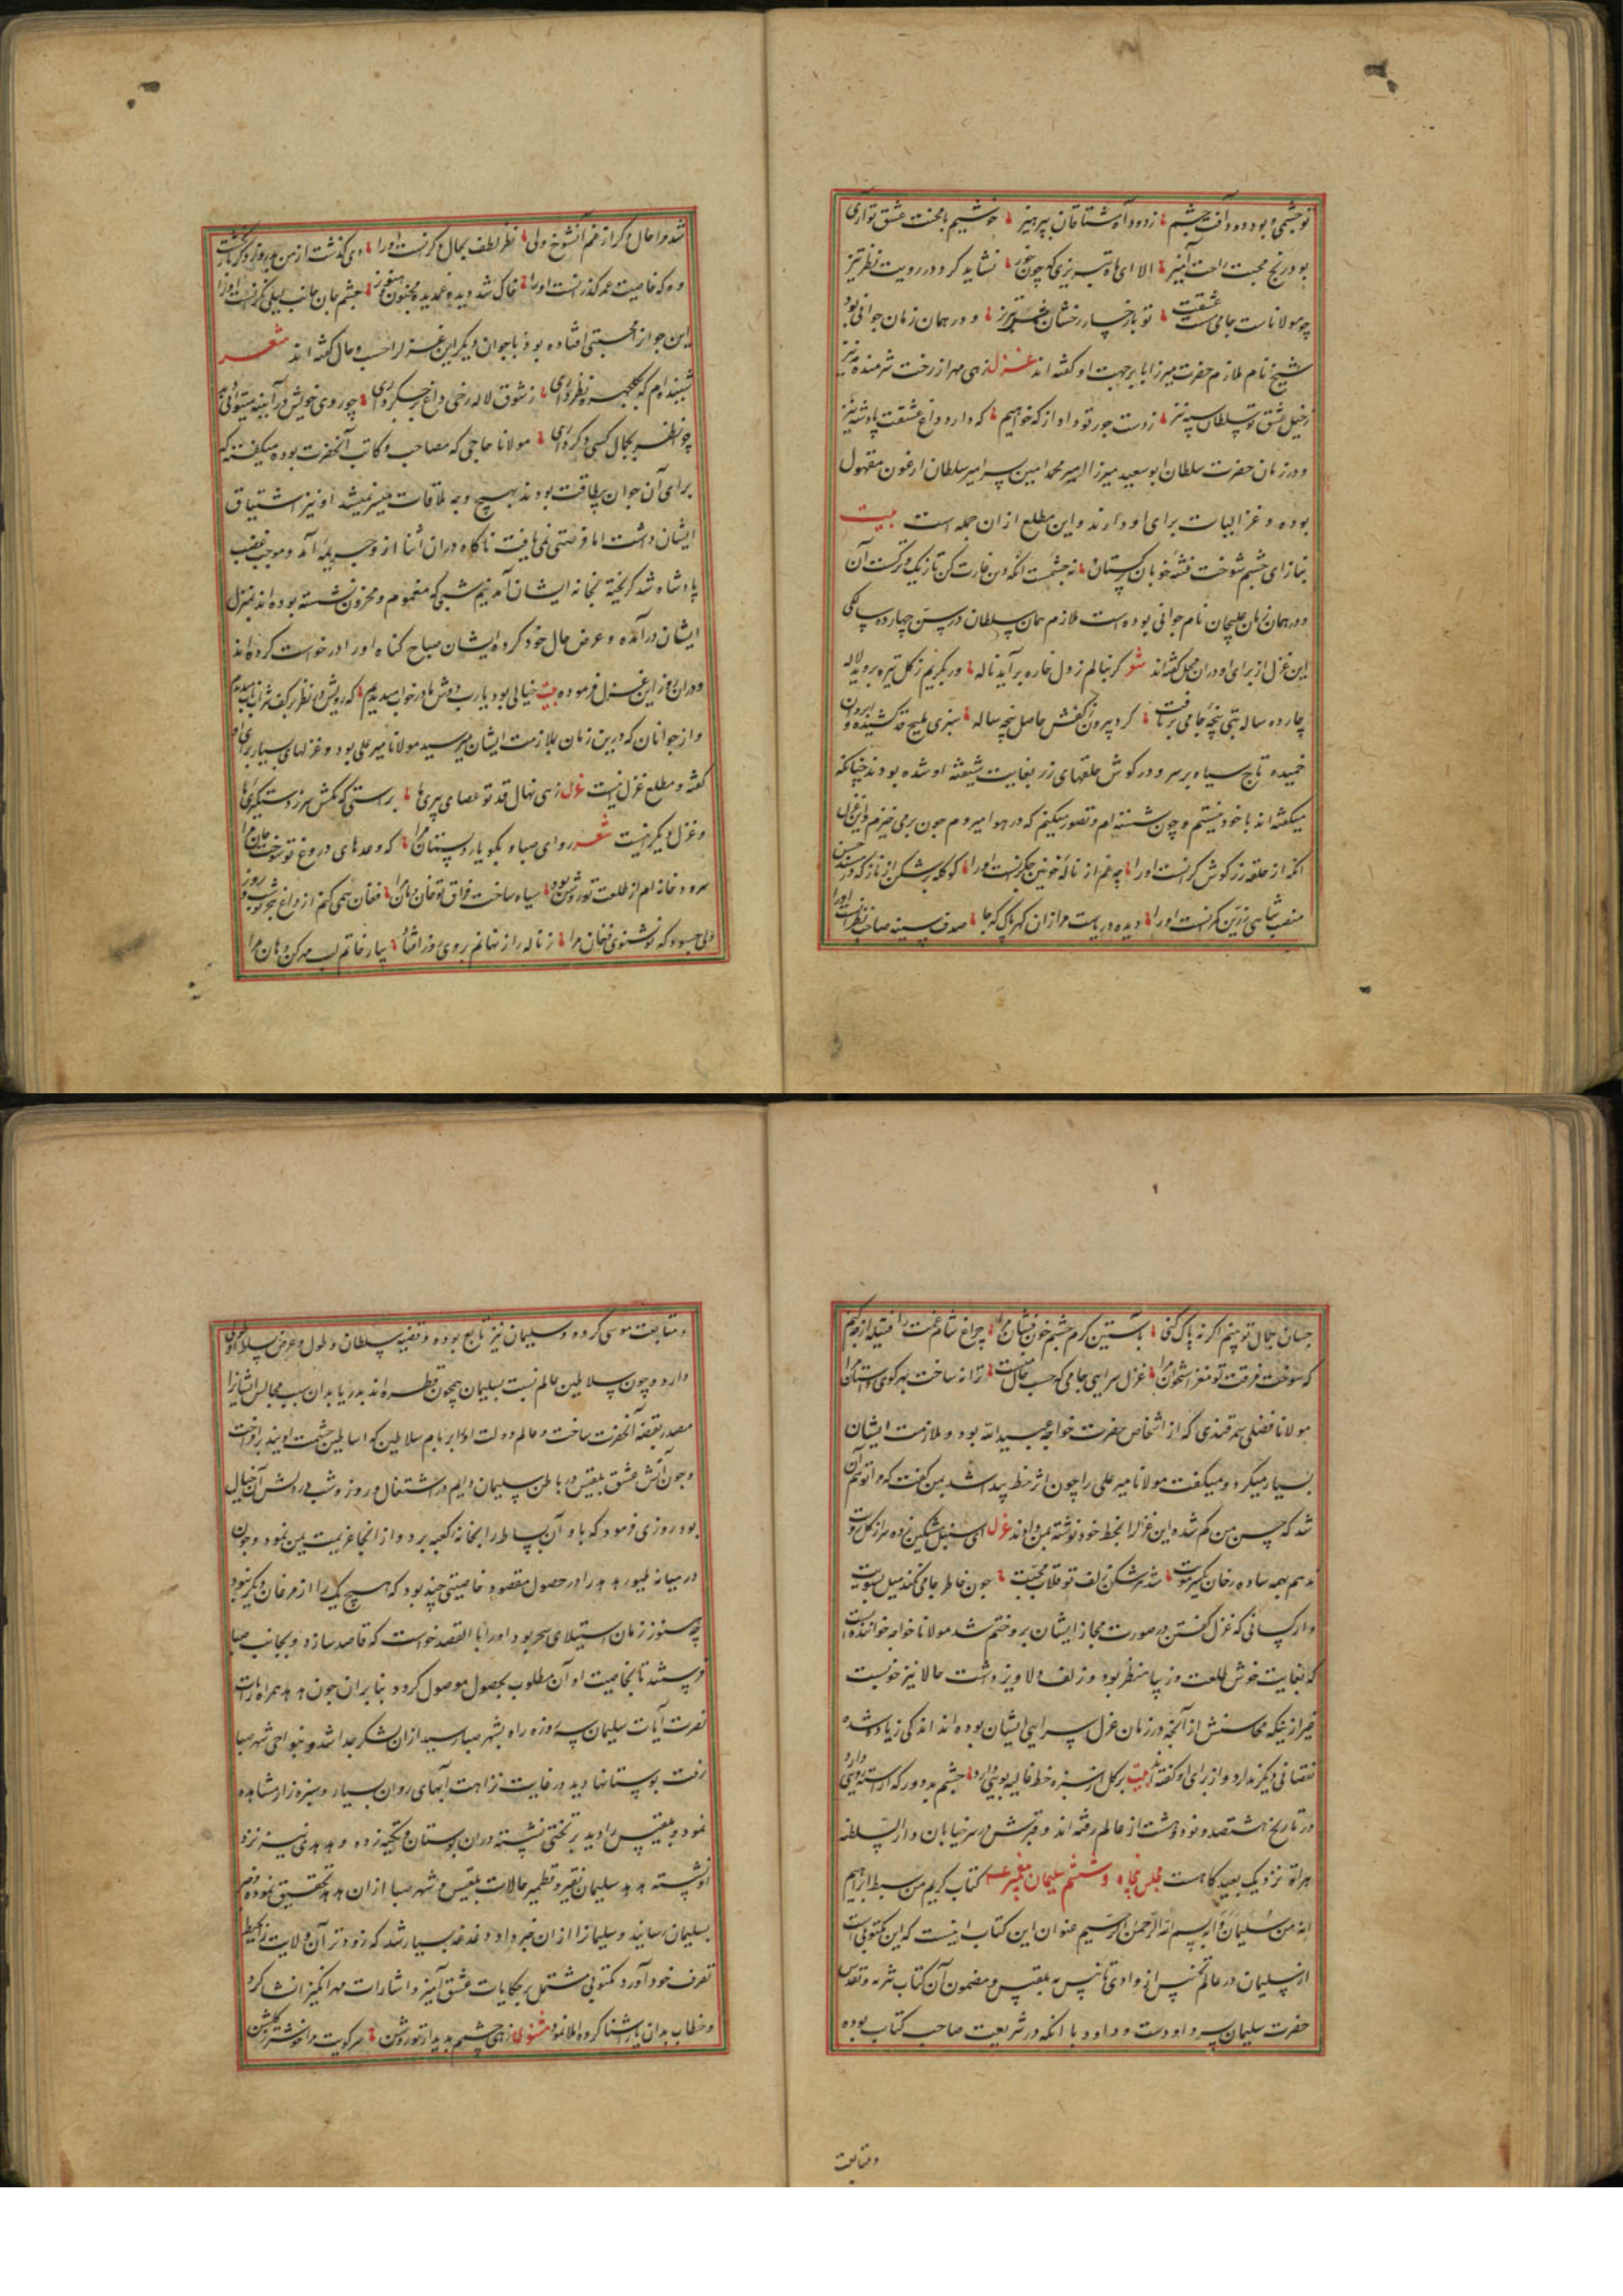 تو چشمی و بود دود آفت چشم زدود آه مشتاقان بپرهیز خوشیم با محنت عشق تو آری
بود رنج محبت راحت آمیز الا ای ماه تبریزی که چون خور نشاید کرد در رویت نظر تیز
چو مولاناست جامی مست عشقت تو با رخسار رخشان شمس تبریز و در همان زمان جوانی بود
شیخ نام ملازم حضرت میرزا بابر جهت او گفته اند غزل زهی مهر از رخت شرمنده مه نیز
خیل عشق تو سلطان سپه نیز ز دست جور تو داد از که خواهیم که دارد داغ عشقت پادشه نیز
و در زمان حضرت سلطان ابوسعید میرزا امیر محمد امین پسر امیر سلطان ارغون مقبول
بوده و غزالیات برای او دارند و این مطلع از ان جمله است بیت
بناز ای چشم شوخت فتنه خوبان ترکستان نه چشمست آنکه دین غارت کن تازیک و ترکست آن
و در همان زمان علیجان نام جوانی بوده است ملازم همان سلطان در سن چهارده سالگی
این غزل از برای او در ان محل گفته اند شعر گر بنالم ز دل خاره برآید ناله ور بگریم ز گل تیره بروید لاله
چارده ساله بتی پنجه جامی بر تافت کرد بیرون ز کفش حاصل پنجه ساله سبزی ملیح قد کشیده و ابروان
خمیده تاج سیاه بر سر و در گوش حلقهای زر بغایت شیفته او شده بودند چنانکه
میگفته اند با خود نیستم و چون نشسته ام و تصور میکنم که در هوا میروم چون برمی خیزم و این غزل
آنکه از حلقه زر گوش گرانست او را چه غم از ناله خونین جگرانست او را گو کله بر شکن از ناز که در مسند حسن
منصب شاهی زرین کمرانست او را دیده دریاست مرا زان گهر پاک که جا صدف سینه صاحب نظرانست او را
شد مرا حال دگر از غم آن شوخ ولی نظر لطف بحال دگرانست او را دی گذشت از من بیروز و دگر باز نگشت
وه که خاصیت عمر گذرانست او را خاک شد دیده غمدیده مجنون و هنوز چشم جان جانب لیلی نگرانست او را
این جوان محبتی افتاده بود با جوان دیگر این غزل را حسب حال گفته اند شعر
شنیده ام که بگلچهره نظر داری ز شوق لاله رخی داغ بر جگر داری چو روی خویش در آیینه میتوانی دید
چرا نظر بجمال کسی دگر داری مولانا حاجی که مصاحب و کاتب آنحضرت بوده میگفته که
برای آن جوان بیطاقت بودند بهیچ وجه ملاقات میسر نمیشد او نیز اشتیاق
ایشان داشت اما فرصتی نمی یافت ناگاه در ان اثنا از وی جریمه آمد و موجب غضب
پادشاه شد گریخته بخانه ایشان آمد نیم شبی که مغموم و محزون نشسته بوده اند بمنزل
ایشان درآمده و عرض حال خود کرده ایشان صباح گناه او را درخواست کرده اند
و در ان روز این غزل فرموده بیت خیالی بود یا رب دوش یا در خواب میدیدم که رویش در نظر بر کف شراب ناب میدیدم
و از جوانان که درین زمان بملازمت ایشان میرسید مولانا میر علی بود و غزلهای بسیار برای او
گفته و مطلع غزل اینست غزل زهی نهال قد تو عصای پیریها براستی که مکش سر ز دستگیریها
و غزل دیگر اینست شعر رو ای صبا و بگو یار دلستان مرا که وعدهای دروغ تو سوخت جان مرا
سرود خانه ام از طلعت تو روشن بود سیاه ساخت فراق تو خان و مان مرا فغان همی کنم از داغ هجر تو شب و روز
ولی چه سود که تو نشنوی فغان مرا ز ناله راز نهانم بروی روز افتاد بیار خاتم لب مهر کن دهان مرا
جهان بجمال تو بینم اگر نه پاک کنی باستین کرم چشم خون فشان مرا چراغ شام غمت را فتیله از چه کنم
که سوخت فرقت تو مغز استخوان مرا غزل سرایی جامی که حسب حال منست ترانه ساخت بهر کوی داستان مرا
مولانا فضلی سمرقندی که از اشخاص حضرت خواجه عبیدالله بود و ملازمت ایشان
بسیار میکرد و میگفت مولانا میر علی را چون اثر خط پیدا شد بمن گفت که مرا توهم آن
شد که حسن من کم شد و این غزل را بخط خود نوشته بمن دادند غزل ای سنبل مشکین زده سر از گل رویت
ندهم بهمه ساده رخان یکسر مویت شد هر شکن زلف تو قلاب محبت چون خاطر جامی نکند میل بسویت
و از کسانی که غزل گفتن در صورت مجاز ایشان برو ختم شد مولانا خواجه خوانند است
که بغایت خوش طلعت و زیبا منظر بود و زلف دلاویز داشت حالا نیز خوبست
غیر از اینکه محاسنش از آنچه در زمان غزل سرایی ایشان بوده اند اندکی زیاده شده
نقصانی دیگر ندارد و از برای او گفته اند بیت بر گل از سبزه خط غالیه بویی دارد چشم بد دور که آراسته رویی دارد
در تاریخ هشتصد و نود و هشت از عالم رفته اند و قبرش در سر خیابان دار السلطنه
هراة نزدیک بعیدگاهست مجلس پنجاه و ششم سلیمان پیغمبر ع کتاب کریم من سبط ابراهیم
انه من سلیمان و انه بسم الله الرحمن الرحیم عنوان این کتاب اینست که این مکتوبی است
از سلیمان در عالم تجنیس از وادی تانیس به بلقیس و مضمون آن کتاب تنزیه و تقدیس
حضرت سلیمان پسر داودست و داود با آنکه در شریعت صاحب کتاب بوده
ومتابعت
و متابعت موسی کرده و سلیمان نیز تابع بوده و قضیه سلطان و طول و عرض بساط او
دارد و چون سلاطین عالم نسبت بسلیمان همچون قطره اند بدریا بدان سبب مجالس العشاق را
مصدر بقصه آنحضرت ساخت و عالم دولت او را بر نام سلاطین که اساطین حشمت اویند برافراخت
و چون آتش عشق بلقیس در باطن سلیمان دایم در اشتغال و روز و شب در دلش آن خیال
بود روزی فرمود که باد آن بساط را بخانه کعبه برد و از آنجا عزیمت یمن نمود و چون
در میانه طیور هدهد را در حصول مقصود خاصیتی چند بود که هیچ یک را از مرغان دیگر نبود
چه هنوز زمان استیلای سحر بود او را با القصد خواست که قاصد سازد و بجانب صبا
فرستد تا بخاصیت او آن مطلوب بحصول موصول گردد بنابران چون هدهد همراه رایات
نصرت آیات سلیمان سه روزه راه بشهر صبا رسید از ان لشکر جدا شد و بنواحی شهر صبا
رفت بوستانها دید در غایت نزاهت آبهای روان بسیار و سبزه زار مشاهده
نمود و بلقیس را دید بر تختی نشسته در ان بوستان و تکیه زده و هدهدی نیز نزد
او نشسته هدهد سلیمان نقیر و قطمیر حالات بلقیس و شهر صبا از ان هدهد تحقیق نموده و خبر
بسلیمان رسانید و سلیمان را از ان خبر داد دغدغه بسیار شد که زودتر آن ولایت را بحیطه
تصرف خود آورد مکتوبی مشتمل بر حکایات عشق آمیز و اشارات مهر انگیز انشا کرد
و خطاب بدان یار آشنا کرده املا نمود مثنوی زهی چشمم بدیدار تو روشن سر کویت مرا خوشتر ز گلشن